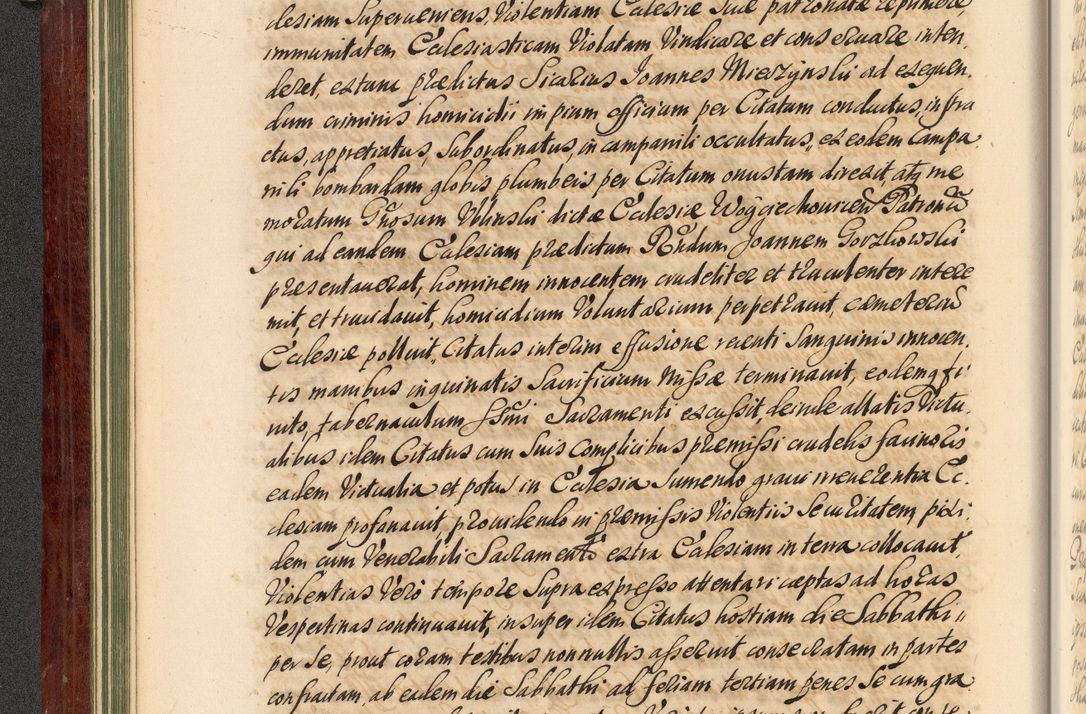 clesiam superveniens, Violentiam Ecclesiæ suæ patronatæ reprimere,
immunitatem Ecclesiasticam Violatam Vindicare et conservare inten,
deret, extunc prædictus Sicarius Joannes Mierzynski ad exequen,
dum criminis homicidii impium officium per Citatum conductus, instra
ctus, appretiatus, subordinatus, in campanili occultatus, ex eodem campa
nili bombardam globis plumbeis per Citatum onustam direxit atq me
moratum Gnosum Ulinski dictæ Ecclesiæ Woyciechovicen Patronũ
qui ad eandem Ecclesiam prædictum Rñdum Joannem Gorzkowski
præsentaverat, hominem innocentem crudeliter et truculenter intere
mit, et trucidavit, homicidium Voluntarium perpetravit, cæmeteriũ
Ecclesiæ polluit, Citatus interim effusione recenti Sanguinis innocen,
tis manibus inquinatis Sacrificium Missæ terminavit, eodemq fi
nito, tabernaculum SSmi Sacramenti excussit, deinde allatis Victu,
alibus idem Citatus cum suis Complicibus præmissi crudelis facinoris
eadem Victualia et potus in Ecclesia sumendo gravi irreverentia Ec,
clesiam profanavit, providendo in præmissis Violentiis securitatem, pixi,
dem cum Venerabili Sacramento extra Ecclesiam in terra collocavit,
Violentias Vero tempore supra expresso attentari cæptas ad horas
Vespertinas continuavit, insuper idem Citatus hostiam die Sabbathi
per se, prout coram testibus nonnullis asseruit consecratam in partes
confractam ab eadem die Sabbathi ad feriam tertiam penes se cum gra